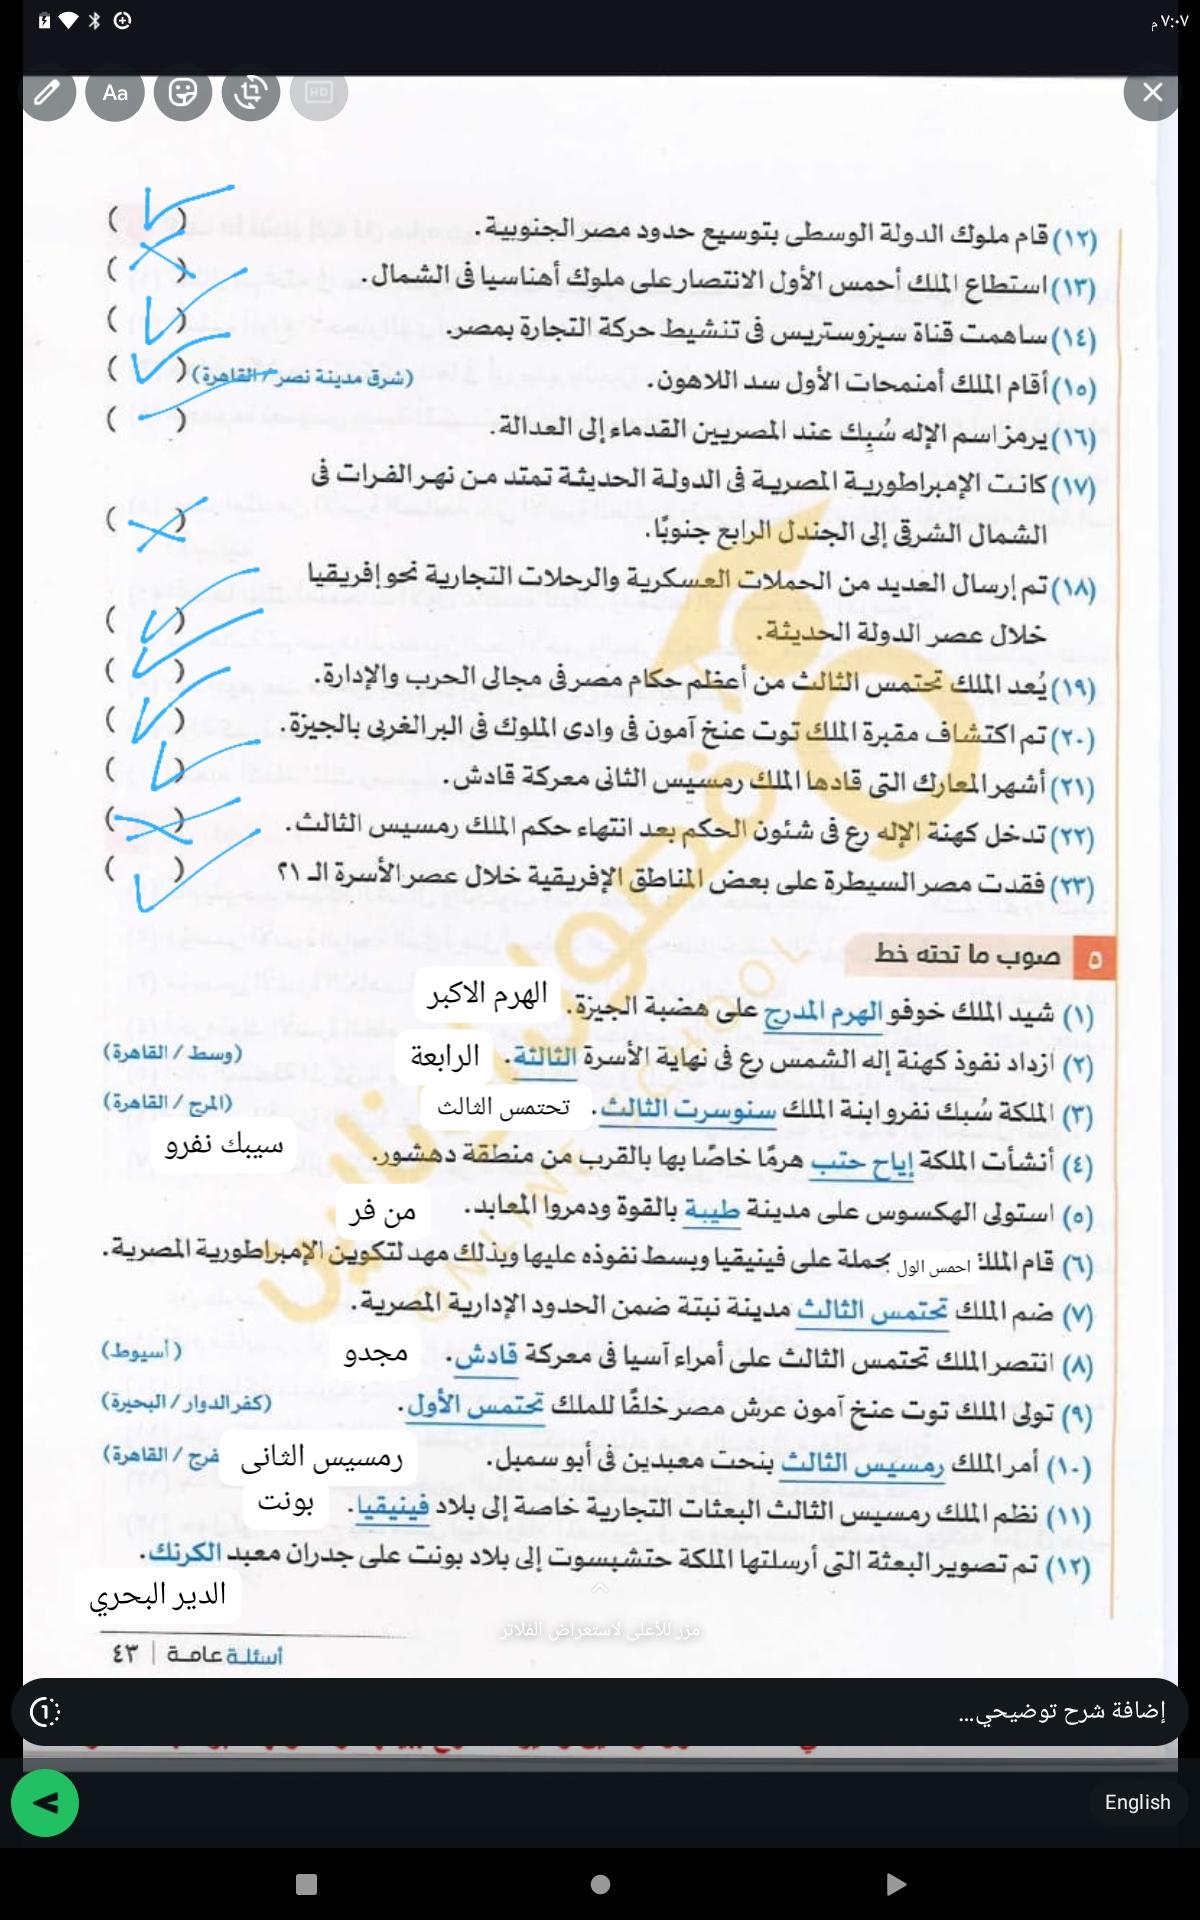 ٧:٠٧ م
Aa
HD
(١٢) قام ملوك الدولة الوسطى بتوسيع حدود مصر الجنوبية. ( )
(١٣) استطاع الملك أحمس الأول الانتصار على ملوك أهناسيا فى الشمال. ( )
(١٤) ساهمت قناة سيزوستريس فى تنشيط حركة التجارة بمصر. ( )
(١٥) أقام الملك أمنمحات الأول سد اللاهون. (شرق مدينة نصر / القاهرة) ( )
(١٦) يرمز اسم الإله سُبِك عند المصريين القدماء إلى العدالة. ( )
(١٧) كانت الإمبراطورية المصرية فى الدولة الحديثة تمتد من نهر الفرات فى
الشمال الشرقى إلى الجندل الرابع جنوبًا. ( )
(١٨) تم إرسال العديد من الحملات العسكرية والرحلات التجارية نحو إفريقيا
خلال عصر الدولة الحديثة. ( )
(١٩) يُعد الملك تحتمس الثالث من أعظم حكام مصر فى مجالى الحرب والإدارة. ( )
(٢٠) تم اكتشاف مقبرة الملك توت عنخ آمون فى وادى الملوك فى البر الغربى بالجيزة. ( )
(٢١) أشهر المعارك التى قادها الملك رمسيس الثانى معركة قادش. ( )
(٢٢) تدخل كهنة الإله رع فى شئون الحكم بعد انتهاء حكم الملك رمسيس الثالث. ( )
(٢٣) فقدت مصر السيطرة على بعض المناطق الإفريقية خلال عصر الأسرة الـ ٢١ ( )
٥ صوب ما تحته خط
(١) شيد الملك خوفو الهرم المدرج على هضبة الجيزة. الهرم الاكبر
(٢) ازداد نفوذ كهنة إله الشمس رع فى نهاية الأسرة الثالثة. الرابعة (وسط / القاهرة)
(٣) الملكة سُبك نفرو ابنة الملك سنوسرت الثالث. تحتمس الثالث (المرج / القاهرة)
(٤) أنشأت الملكة إياح حتب هرمًا خاصًا بها بالقرب من منطقة دهشور. سيبك نفرو
(٥) استولى الهكسوس على مدينة طيبة بالقوة ودمروا المعابد. من فر
(٦) قام الملك احمس الول بحملة على فينيقيا وبسط نفوذه عليها وبذلك مهد لتكوين الإمبراطورية المصرية.
(٧) ضم الملك تحتمس الثالث مدينة نبتة ضمن الحدود الإدارية المصرية.
(٨) انتصر الملك تحتمس الثالث على أمراء آسيا فى معركة قادش. مجدو (أسيوط)
(٩) تولى الملك توت عنخ آمون عرش مصر خلفًا للملك تحتمس الأول. (كفر الدوار / البحيرة)
(١٠) أمر الملك رمسيس الثالث بنحت معبدين فى أبو سمبل. رمسيس الثانى فرج / القاهرة)
(١١) نظم الملك رمسيس الثالث البعثات التجارية خاصة إلى بلاد فينيقيا. بونت
(١٢) تم تصوير البعثة التى أرسلتها الملكة حتشبسوت إلى بلاد بونت على جدران معبد الكرنك.
الدير البحري
مرّر للأعلى لاستعراض الفلاتر
أسئلة عامة | ٤٣
إضافة شرح توضيحي...
English